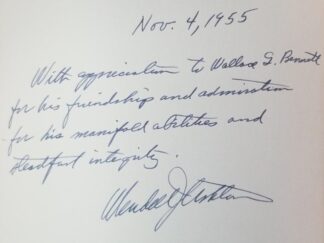 Nov. 4, 1955
With appreciation to Wallace G. Bennett
for his friendship and admiration
for his manifold abilities and
steadfast integrity.
Wendell J. Ashton